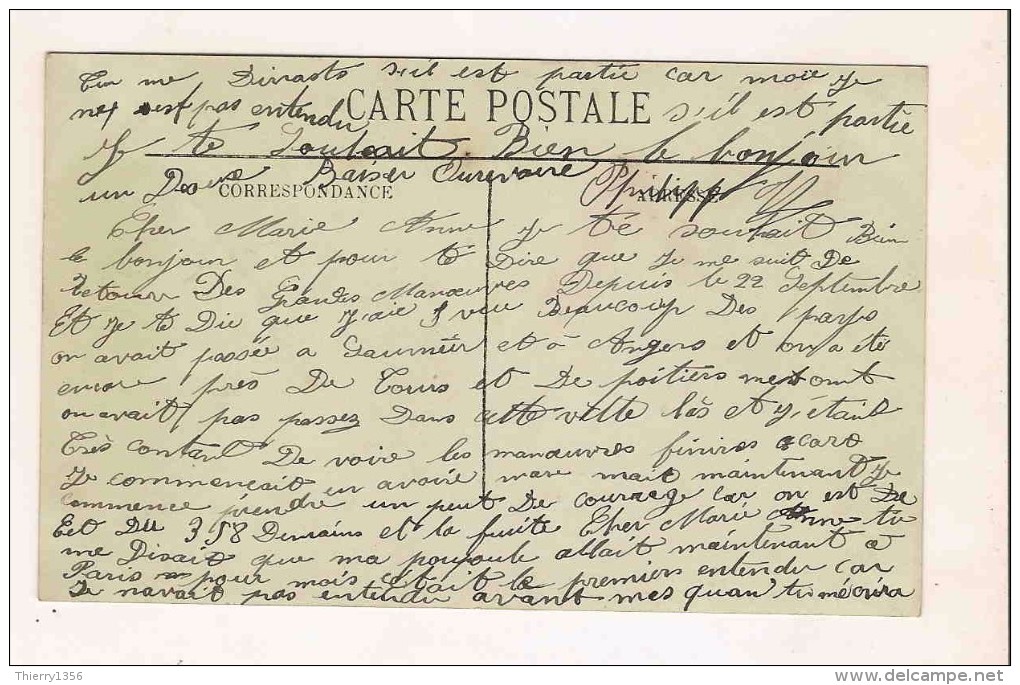 Tu me Dirrasts s'il est partie car moie Je
ne est pas entendu
CARTE POSTALE
s'il est partie
Je te Souhait Bien le bonjour
un Doux Baiser Aurevoire Philipp
CORRESPONDANCE
ADRESSE
Cher Marie Anne Je te souhait Bien
le bonjour et pour te Dire que Je me suit De
Retour Des Grandes Manœuvres Depuis le 22 Septembre
Et Je te Die que J'aie veu Beaucoup Des pays
on avait passée a Saumeur et à Angers et on a été
encore près De Tours et De poitiers mes ont
on avait pas passez Dans cette ville lâs et J'étais
Très contant De voire les manœuvres finires care
Je commençait en avoire mare mait maintenant Je
commence prendre un peut De courage car on est De
Cet Du 358 Demains et la fuite Cher Marie Anne tu
me Disait que ma poupoule allait maintenant a
Paris pour mois cetait le premiers entendu car
Je navait pas entendu avant mes quan' tu
Thierry1356
www.delcampe.net